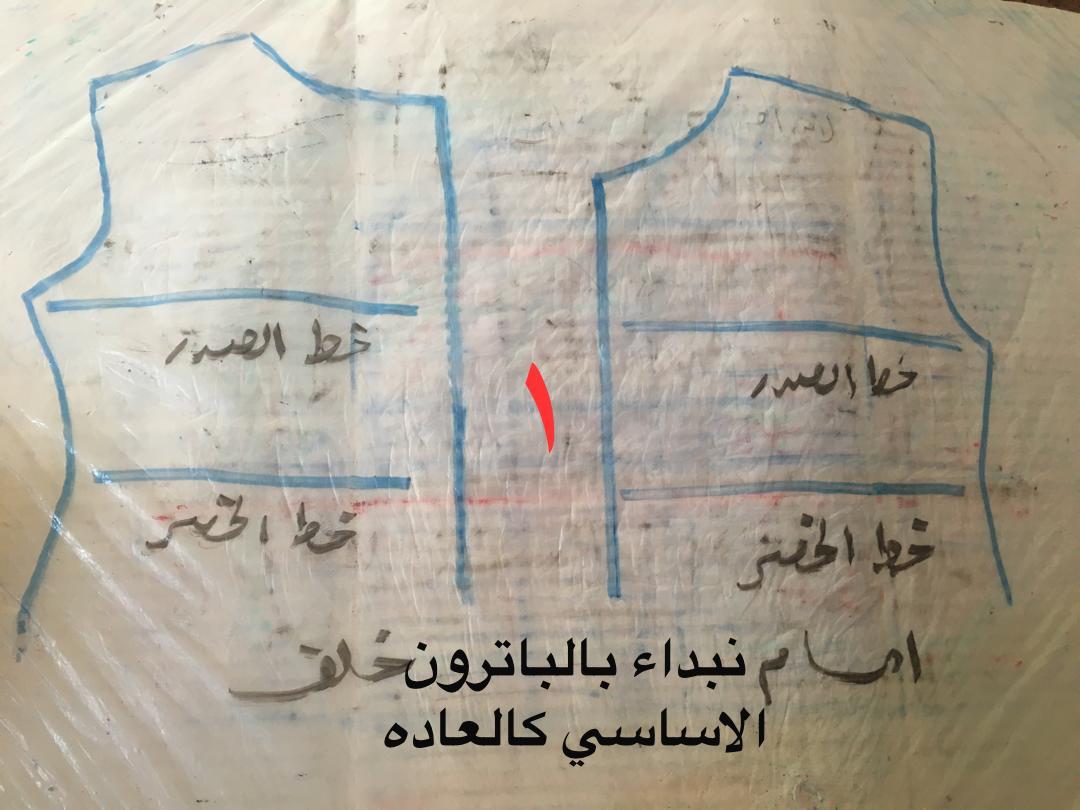 خط الصدر
خط الصدر
١
خط الخصر
خط الخصر
امام
خلف
نبداء بالباترون
الاساسي كالعاده